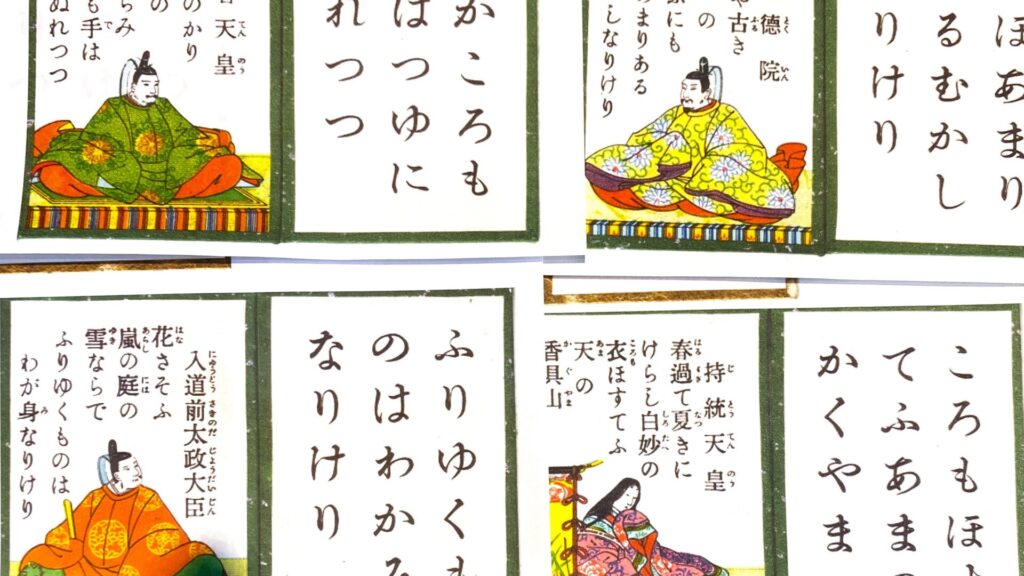 天皇
のかり
の
らみ
も手は
ぬれつつ
かころも
はつゆに
れつつ
徳院
古き
の
にも
まりある
しなりけり
ほあまり
るむかし
りけり
入道前太政大臣
花さそふ
嵐の庭の
雪ならで
ふりゆくものは
わが身なりけり
ふりゆくも
のはわかみ
なりけり
持統天皇
春過て夏きに
けらし白妙の
衣ほすてふ
天の
香具山
ころもほ
てふあまの
かくやま